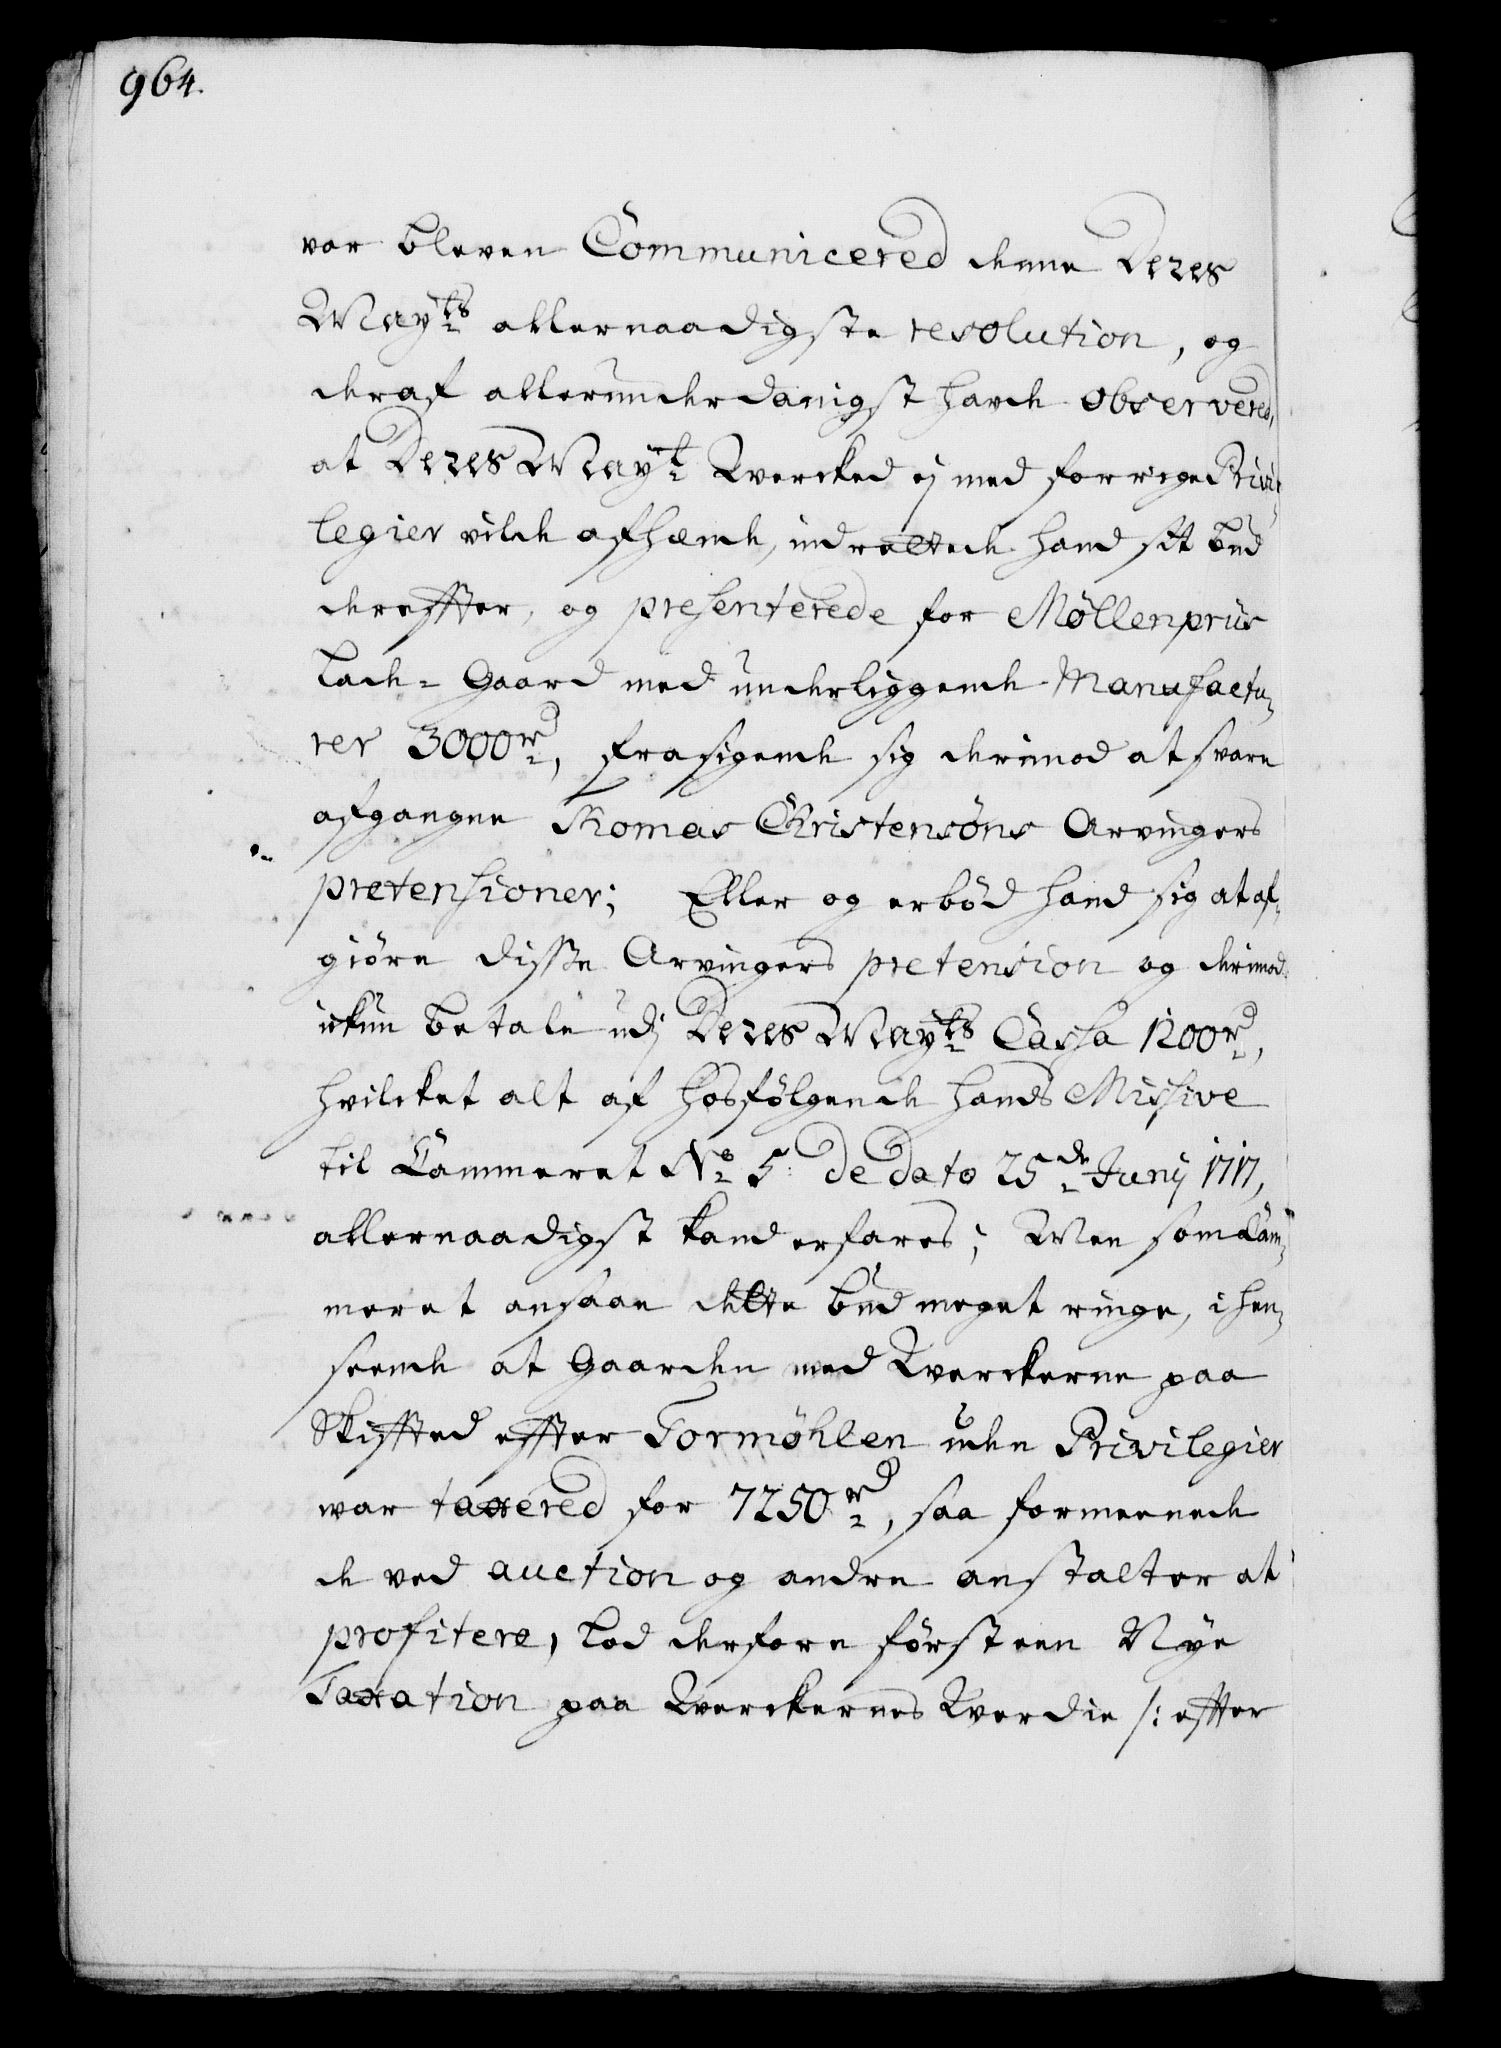 964.
var bleven Communicered denne Deres
Mayts allernaadigste resolution, og
deraf allerunderdanigst havde observered,
at Deres Mayt Wercked ej med forrige Privi-
legier vilde afhænde, indrættede hand sit bud
dereffter, og presenterede for Møllenpriis
Lade-Gaard med underliggende Manufactu-
rer 3000rd, frasigende sig derimod at svare
afgangne Thomas Christensøns Arvingers
pretensioner; Eller og erbød hand sig at af-
giøre disse Arvingers pretension og derimod
ickun betale udj Deres Mayts Cassa 1200rd,
hvilcket alt af hosfølgende hands Missive
til Cammeret No 5: de dato 25de Junij 1717,
allernaadigst kand erfares; Men som Cam-
meret ansaae dette bud meget ringe, i hen-
seende at Gaarden med Werckerne paa
Skiffted effter Tormøhlen uden Privilegier
war taxered for 7250rd, saa formeenede
de ved auction og andre anstalter at
profitere, lod derfore først een Nye
Taxation paa Werckernes Werdie /: effter